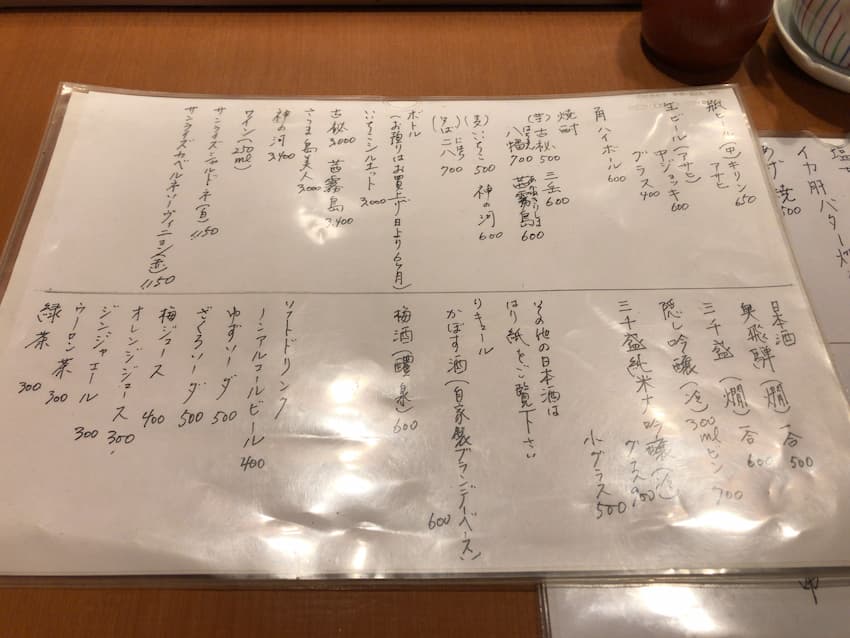 瓶ビール(中)キリン
アサヒ 650
生ビール(アサヒ)
中ジョッキ 600
グラス 400
角ハイボール 600
焼酎
(芋)古秘 500 三岳 600
八幡 700 茜霧島 600
(麦)いいちこ 500 神の河 600
(そば)二八 700
ボトル
(お預りはお買上げ日より6ヶ月)
いいちこシルエット 3,000
古秘 3,000 茜霧島 3,400
さつま島美人 3,000
神の河 3,400
ワイン(250ml)
サンライズシャルドネ(白) 1,150
サンライズカベルネソーヴィニヨン(赤) 1,150
日本酒
奥飛騨(燗)一合 500
三千盛(燗)一合 600
隠し吟醸(冷)300mlビン 700
三千盛純米大吟醸(冷)
グラス
小グラス 500
その他の日本酒は
はり紙をご覧下さい
リキュール
かぼす酒(自家製ブランデーベース) 600
梅酒(醴泉) 600
ソフトドリンク
ノンアルコールビール 400
ゆずソーダ 500
ざくろソーダ 500
梅ジュース 400
オレンジジュース 300
ジンジャエール 300
ウーロン茶 300
緑茶 300
イカ肝バター
500